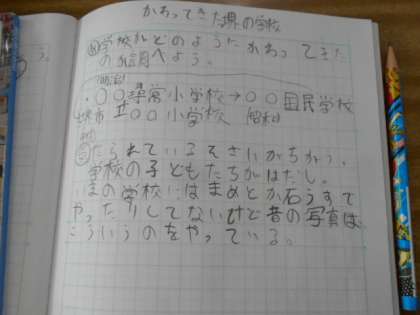 かわってきた堺の学校
め学校はどのようにかわってきた
のか調べよう。
(明治)
・〇〇尋常小学校→〇〇国民学校
堺市立〇〇小学校 (昭和)
られているそざいがちがう。
学校の子どもたちがはだし。
いまの学校にはまめとか石うすで
やったりしてないけど昔の写真は
こういうのをやっている。